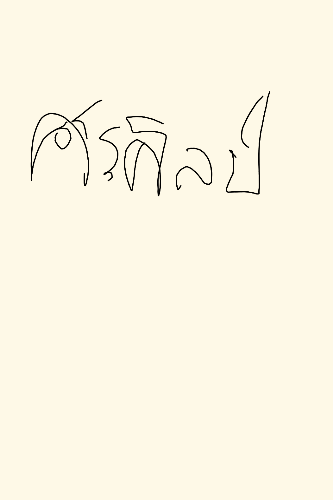 ศรศิลป์